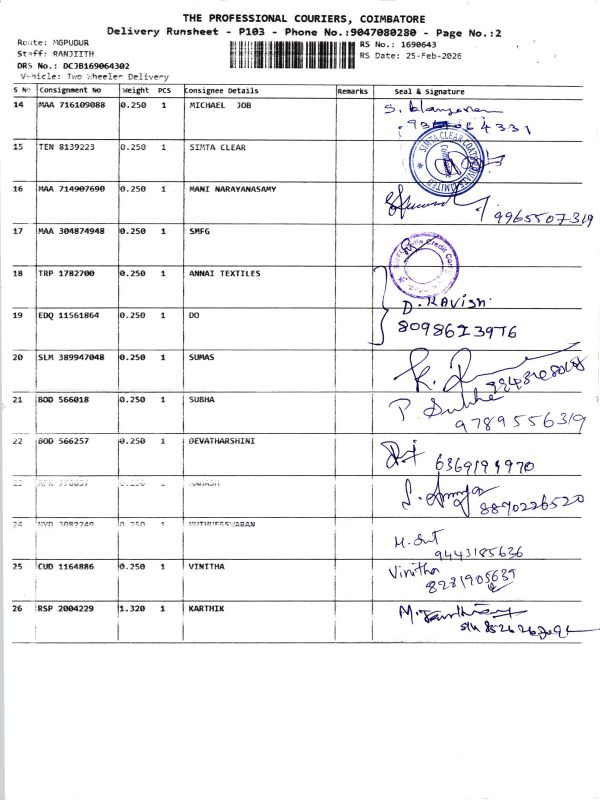 THE PROFESSIONAL COURIERS, COIMBATORE
Delivery Runsheet - P103 - Phone No.:9047080280 - Page No.:2
Route: MGPUDUR
Staff: RANJIITH
DRS No.: DCJB169064302
Vehicle: Two Wheeler Delivery
RS No.: 1690643
RS Date: 25-Feb-2026
S No Consignment No Weight PCS Consignee Details Remarks Seal & Signature
14 MAA 716109088 0.250 1 MICHAEL JOB
15 TEN 8139223 0.250 1 SIMTA CLEAR
SIMTA CLEAR COATS PRIVATE LIMITED
16 MAA 714907690 0.250 1 MANI NARAYANASAMY
9965507319
17 MAA 304874948 0.250 1 SMFG
Credit
18 TRP 1782700 0.250 1 ANNAI TEXTILES
D. KAVISH
19 EDQ 11561864 0.250 1 DO
8098623976
20 SLM 389947048 0.250 1 SUMAS
21 BOD 566018 0.250 1 SUBHA
P. Subha
9789556319
22 BOD 566257 0.250 1 DEVATHARSHINI
6369199970
23 0.250 1
8870226520
24 0.250 1 MUTHUESSWARAN
9443185636
25 CUD 1164886 0.250 1 VINITHA
Vinitha
8281905639
26 RSP 2004229 1.320 1 KARTHIK